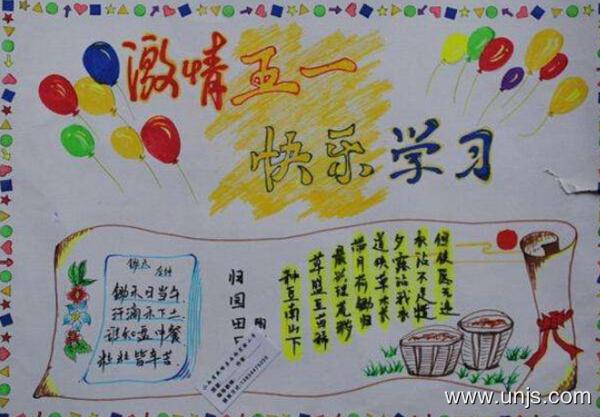 激情五一
快乐学习
锄禾
锄禾日当午
汗滴禾下土
谁知盘中餐
粒粒皆辛苦
归园田居
陶
种豆南山下
草盛豆苗稀
晨兴理荒秽
带月荷锄归
道狭草木长
夕露沾我衣
衣沾不足惜
但使愿无违
www.unjs.com